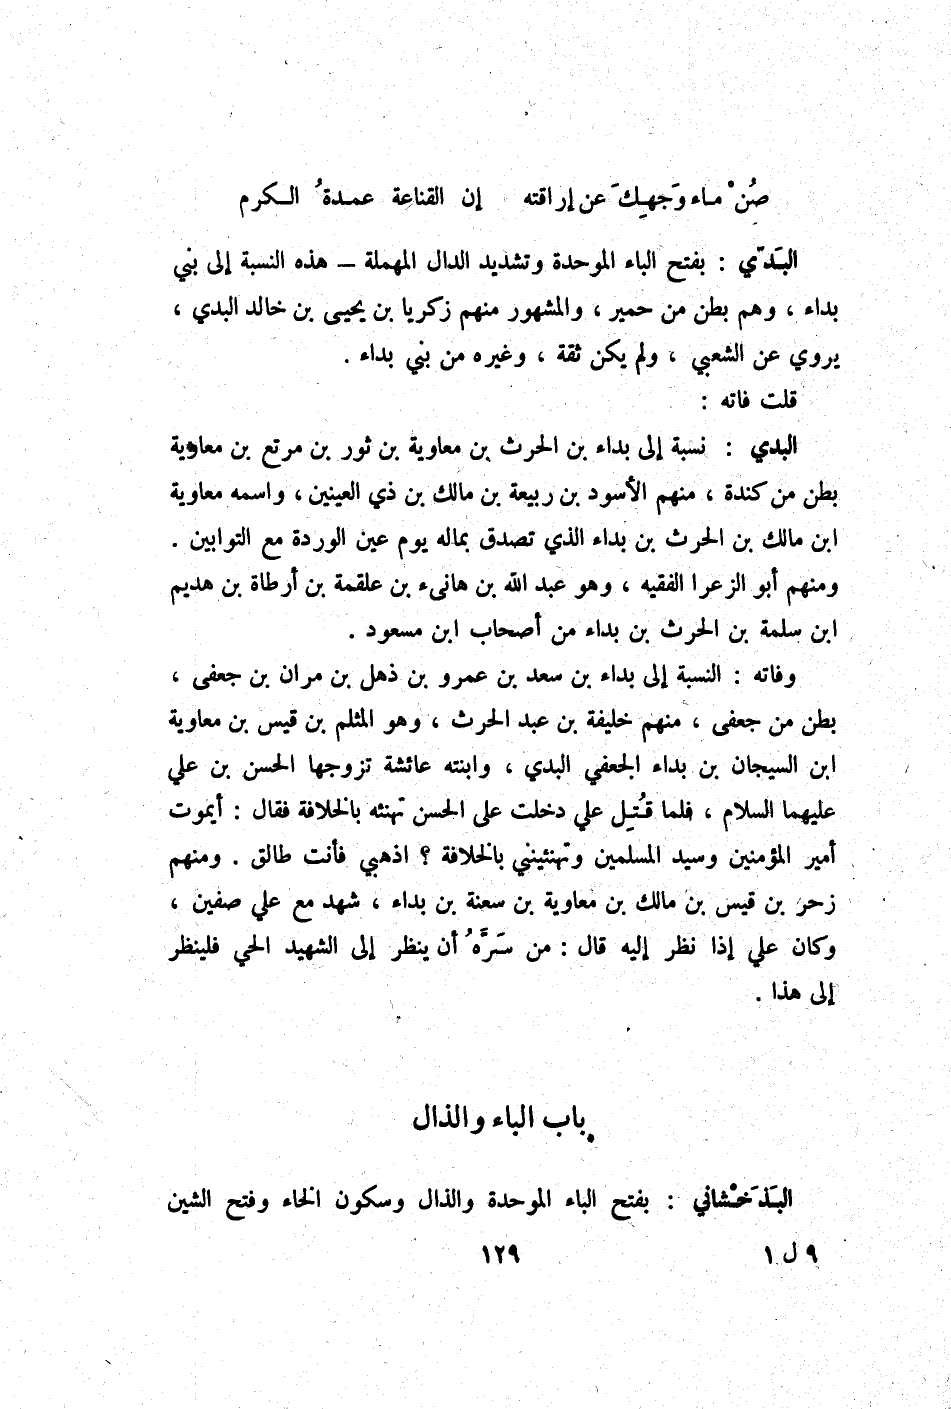 صُنْ مـاء وَجهِـكَ عن إراقته إن القناعة عمـدةُ الـكرم
البَـدّي : بفتح الباء الموحدة وتشديد الدال المهملة — هذه النسبة إلى بني
بداء ، وهم بطن من حمير ، والمشهور منهم زكريا بن يحيى بن خالد البدي ،
يروي عن الشعبي ، ولم يكن ثقة ، وغيره من بني بداء .
قلت فاته :
البدي : نسبة إلى بداء بن الحرث بن معاوية بن ثور بن مرتع بن معاوية
بطن من كندة ، منهم الأسود بن ربيعة بن مالك بن ذي العينين ، واسمه معاوية
ابن مالك بن الحرث بن بداء الذي تصدق بماله يوم عين الوردة مع التوابين .
ومنهم أبو الزعرا الفقيه ، وهو عبد الله بن هانىء بن علقمة بن أرطاة بن هديم
ابن سلمة بن الحرث بن بداء من أصحاب ابن مسعود .
وفاته : النسبة إلى بداء بن سعد بن عمرو بن ذهل بن مران بن جعفى ،
بطن من جعفى ، منهم خليفة بن عبد الحرث ، وهو المثلم بن قيس بن معاوية
ابن السيجان بن بداء الجعفي البدي ، وابنته عائشة تزوجها الحسن بن علي
عليهما السلام ، فلما قُـتِـل علي دخلت على الحسن تهنئه بالخلافة فقال : أيموت
أمير المؤمنين وسيد المسلمين وتهنئينني بالخلافة ؟ اذهبي فأنت طالق . ومنهم
زحر بن قيس بن مالك بن معاوية بن سعنة بن بداء ، شهد مع علي صفين ،
وكان علي إذا نظر إليه قال : من سَـرَّهُ أن ينظر إلى الشهيد الحي فلينظر
إلى هذا .
باب الباء والذال
البَـذَخْـشاني : بفتح الباء الموحدة والذال وسكون الخاء وفتح الشين
٩ ل ١ ١٢٩